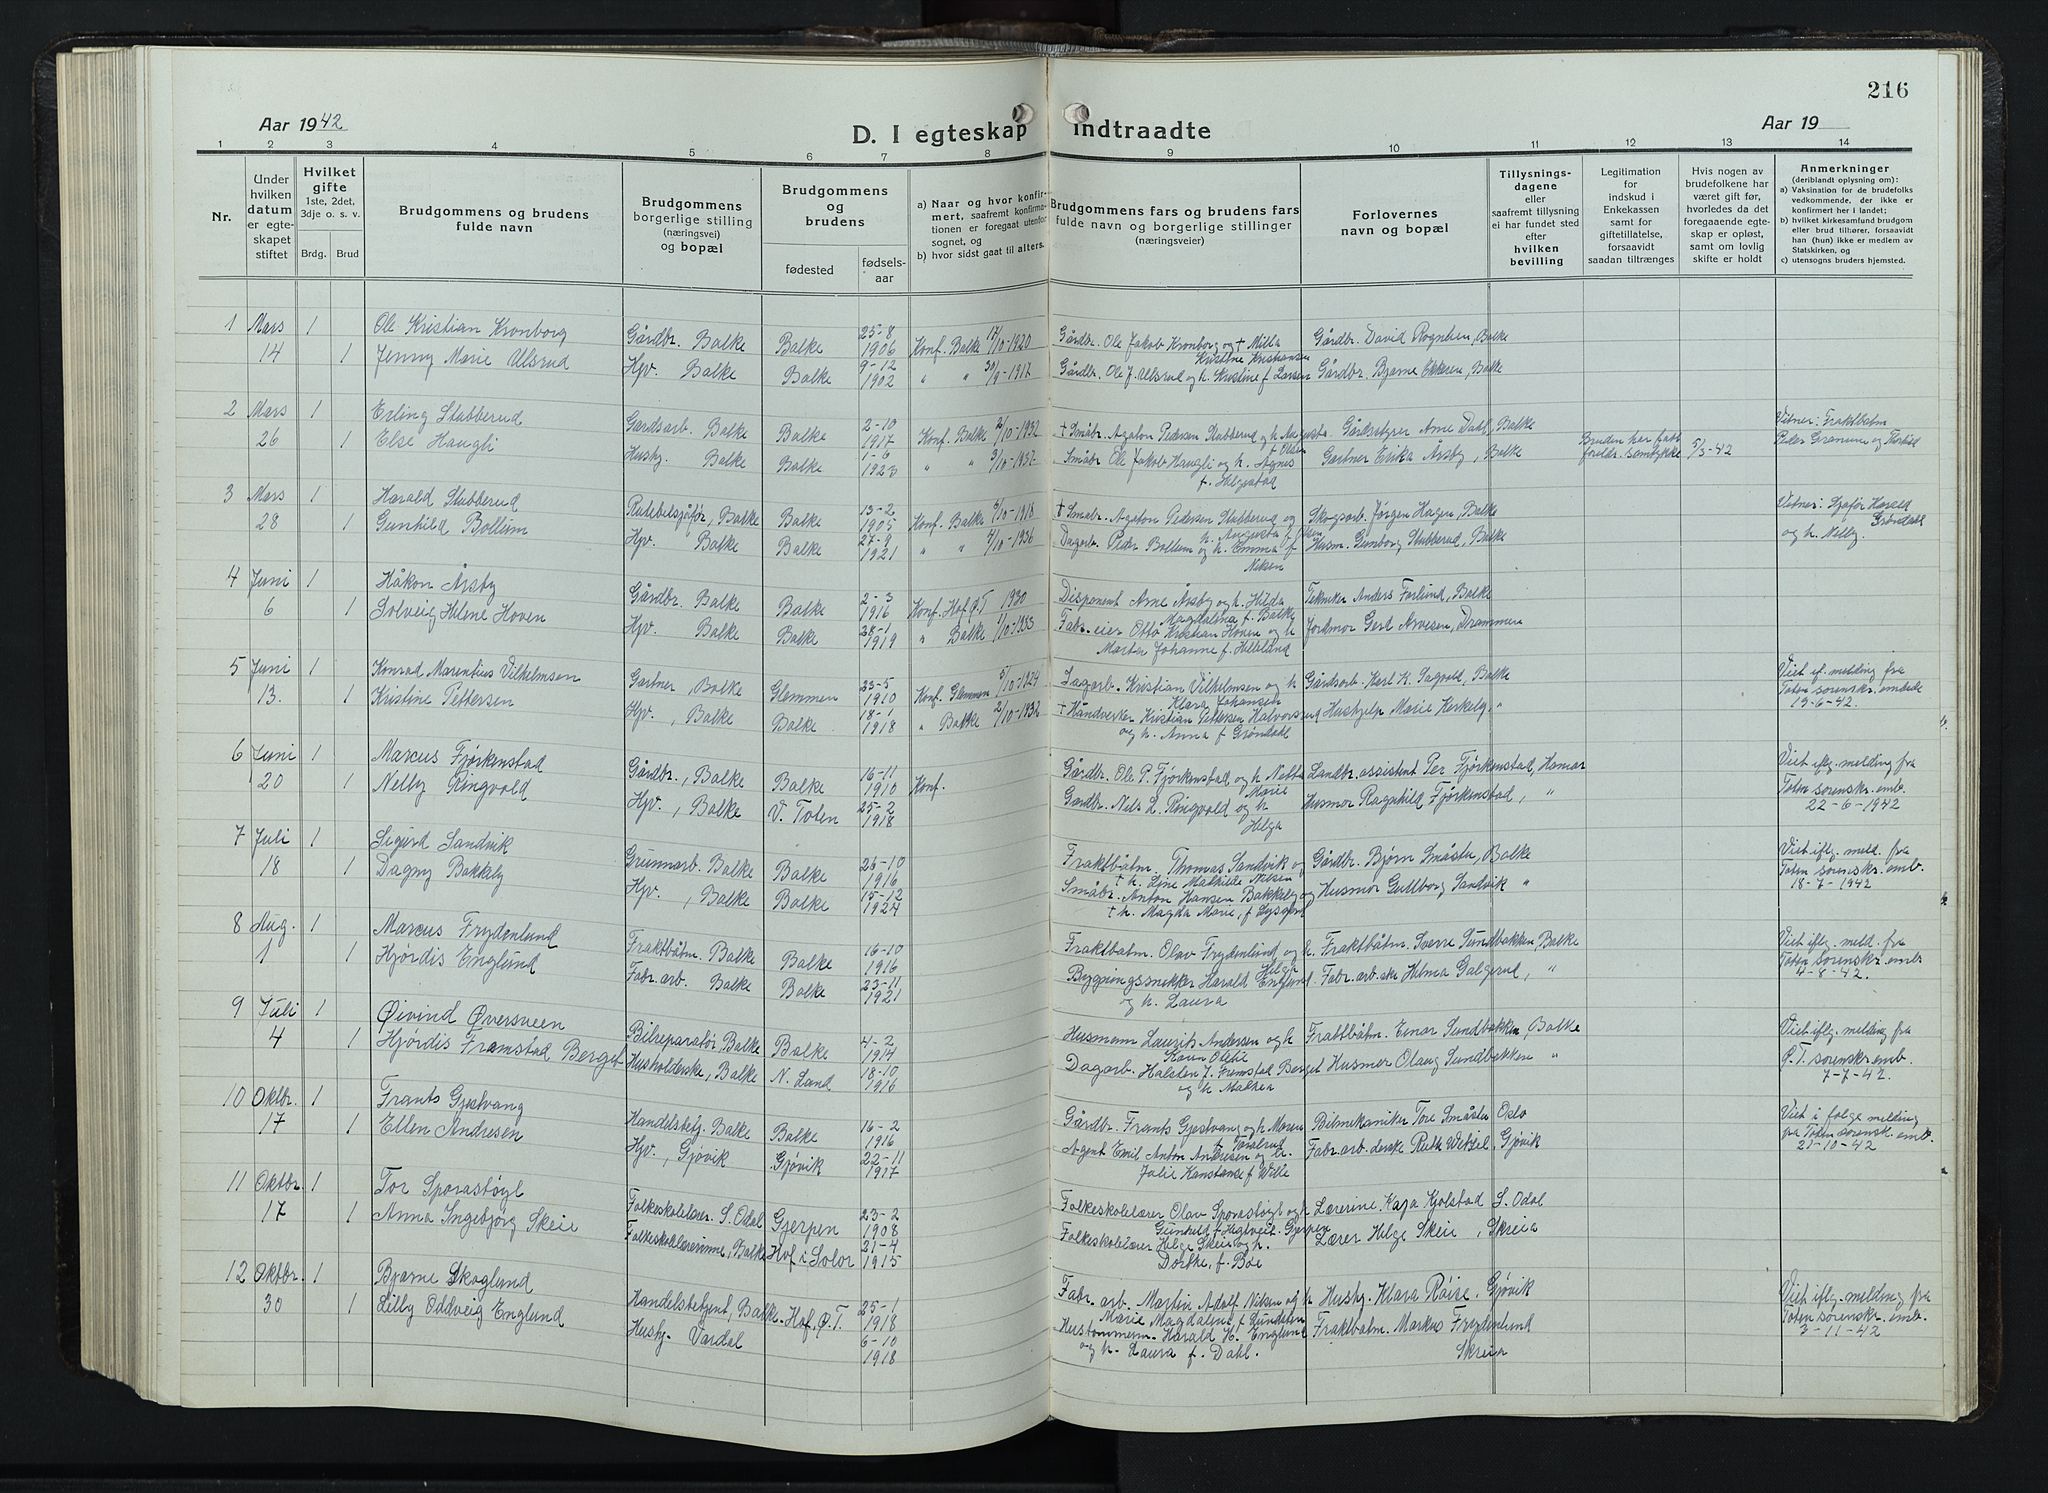 216
Aar 1942
D. I egteskap indtraadte
Aar 19
1 2 3 4 5 6 7 8 9 10 11 12 13 14
Nr.
Under hvilken datum er egteskapet stiftet
Hvilket gifte 1ste, 2det, 3dje o. s. v.
Brdg. Brud
Brudgommens og brudens fulde navn
Brudgommens borgerlige stilling (næringsvei) og bopæl
Brudgommens og brudens
fødested
fødsels-aar
a) Naar og hvor konfirmert, saafremt konfirmationen er foregaat utenfor sognet, og
b) hvor sidst gaat til alters.
Brudgommens fars og brudens fars fulde navn og borgerlige stillinger (næringsveier)
Forlovernes navn og bopæl
Tillysningsdagene eller saafremt tillysning ei har fundet sted efter hvilken bevilling
Legitimation for indskud i Enkekassen samt for giftetillatelse, forsaavidt saadan tiltrænges
Hvis nogen av brudefolkene har været gift før, hvorledes da det foregaaende egteskap er opløst, samt om lovlig skifte er holdt
Anmerkninger (deriblandt oplysning om):
a) Vaksination for de brudefolks vedkommende, der ikke er konfirmert her i landet;
b) hvilket kirkesamfund brudgom eller brud tilhører, forsaavidt han (hun) ikke er medlem av Statskirken, og
c) utensogns bruders hjemsted.
1 Mars 1 Ole Kristian Kronborg Gårdbr. Balke Balke 25-8 1906 Konf. Balke 17/10-1920 Gårdbr. Ole Jakob Kronborg og † Milla Kristine Kristiansen Gårdbr. David Rognhein, Balke
14 1 Jenny Marie Ullsrud Hjv. Balke Balke 9-12 1902 " " 30/9-1917 Gårdbr. Ole J. Ullsrud og h. Kristine f. Larsen Gårdbr. Bjarne Ekkeren, Balke
2 Mars 1 Erling Stubberud Gardsarb. Balke Balke 2-10 1917 Konf. Balke 2/10-1932 † Småbr. Agaton Pedersen Stubberud og h. Augusta f. Olsen Gårdstyrer Arne Dahl, Balke Vitner: Fraktbåtm.
26 1 Else Haugli Hushj. Balke Balke 1-6 1923 " " 3/10-1937 Småbr. Ole Jakob Haugli og h. Agnes f. Helgestad Gartner Erika Årsby, Balke Bruden har fått foreldr. samtykke 5/3-42 Peder Granum og Torbild
3 Mars 1 Harald Stubberud Rutebilsjåfør, Balke Balke 13-2 1905 Konf. Balke 6/10-1918 † Småbr. Agaton Pedersen Stubberud og h. Augusta f. Olsen Skogsarb. Jørgen Hagen, Balke Vitner: Sjåfør Harald Grøndahl
28 1 Gunhild Bollum Hjv. Balke Balke 27-9 1921 " " 4/10-1936 Dagarb. Peder Bollum og h. Emma f. Niken Husm. Gunborg Stubberud, Balke og h. Nelly.
4 Juni 1 Håkon Årsby Gårdbr. Balke Balke 2-3 1916 Konf. Hof Ø.T. 1930 Disponent Arne Årsby og h. Hilda Magdalena f. Balke Tekniker Anders Forlund, Balke
6 1 Solveig Helene Hoven Hjv. Balke Balke 28-1 1919 " Balke 1/10-1933 Fabr.eier Otto Kristian Hoven og h. Marta Johanne f. Helleland Jordmor Gerd Arvesen, Drammen
5 Juni 1 Konrad Marentius Vilhelmsen Gartner, Balke Glemmen 23-5 1910 Konf. Glemmen 5/10-1924 Sagarb. Kristian Vilhelmsen og h. Klara Johansen Gårdsarb. Karl K. Sagvold, Balke Viet if. melding fra
13. 1 Kristine Pettersen Hjv., Balke Balke 18-1 1918 " Balke 2/10-1932 † Håndverker Kristian Pettersen Halvorsrud og h. Anna f. Grøndahl Hushjelp Marie Kerkelg, " Toten sorenskr. embede 13-6-42.
6 Juni 1 Marcus Fjørkenstad Gårdbr., Balke Balke 16-11 1910 Konf. Gårdbr. Ole P. Fjørkenstad, og h. Netta Marie Landbr. assistent Per Fjørkenstad, Hamar Viet iflg. melding fra
20 1 Nelly Ringvold Hjv., Balke V. Toten 25-2 1918 Gardbr. Nils L. Ringvold og h. Helga Husmor Ragnhild Fjørkenstad, " Toten sorenskr. emb. 22-6-1942
7 Juli 1 Sigurd Sandvik Grunnarb. Balke Balke 26-10 1916 Fraktbåtm. Thomas Sandvik og † h. Lyne Mathilde Nilsen Gårdbr. Bjørn Småstu, Balke Viet iflg. meld. fra
18 1 Dagny Bakkely Hjv., Balke Balke 15-12 1924 Småbr. Anton Hansen Bakkely og † h. Magda Marie, f. Lysgård Husmor Gullborg Sandvik " Toten sorenskr. emb. 18-7-1942
8 Aug. 1 Marcus Frydenlund Fraktbåtm. Balke Balke 16-10 1916 Fraktbåtm. Olav Frydenlund og h. Helga Fraktbåtm. Sverre Sundbakken, Balke Viet iflg. meld. fra
1 1 Hjørdis Englund Fabr. arb. Balke Balke 23-11 1921 Bygningssnekker Harald Englund og h. Laura Fabr. arb.ske Hilma Galgerud, " Toten sorenskr. emb. 4-8-42.
9 Juli 1 Øivind Øversveen Bilreparatør, Balke Balke 4-2 1914 Husmann Lauritz Andersen og h. Karen Otelie Fraktbåtm. Einar Sundbakken, Balke Viet iflg. melding fra
4 1 Hjørdis Framstad Berget Husholderske, Balke N. Land 18-10 1916 Dagarb. Halsten J. Fremstad Berget og h. Mathea Husmor Olaug Sundbakken " Ø.T. sorenskr. emb. 7-7-42.
10 Oktbr. 1 Frants Gjestvang Handelsbetj. Balke Balke 16-2 1916 Gårdbr. Frants Gjestvang og h. Maren f. Fossrud Bilmekaniker Tore Småstu Oslo Viet i følge melding
17 1 Ellen Andresen Hjv., Gjøvik Gjøvik 22-11 1917 Agent Emil Anton Andresen og h. Julie Konstanse f. Wille Fabr. arb.derske Ruth Wetzel, Gjøvik fra Toten sorensk. emb. 21-10-42
11 Oktbr. 1 Tor Sporastøyl Folkeskolelærer. S. Odal Gjerpen 23-2 1908 Folkeskolelærer Olav Sporastøyl og h. Gunhild f. Hegtveit. Gjerpen Lærerine Kaja Kjolstad S. Odal
17 1 Anna Ingebjørg Skeie Folkeskolelærerinne, Balke Hof i Solør 21-4 1915 Folkeskolelærer Helge Skeie og h. Dorthe, f. Bøe Lærer Helge Skeie, Skreia
12 Oktbr. 1 Bjarne Skoglund Handelsbetjent, Balke Hof, Ø.T. 25-1 1918 Fabr. arb. Martin Adolf Nilsen og h. Marie Magdalene f. Lundsten Hushj. Klara Røise. Gjøvik Viet iflg. melding fra
30 1 Lilly Oddveig Englund Hushj. Vardal 6-10 1918 Hustømmerm. Harald H. Englund og h. Laura f. Dahl. Fraktbåtm. Markus Frydenlund Skreia Toten sorenskr. emb. 3-11-42